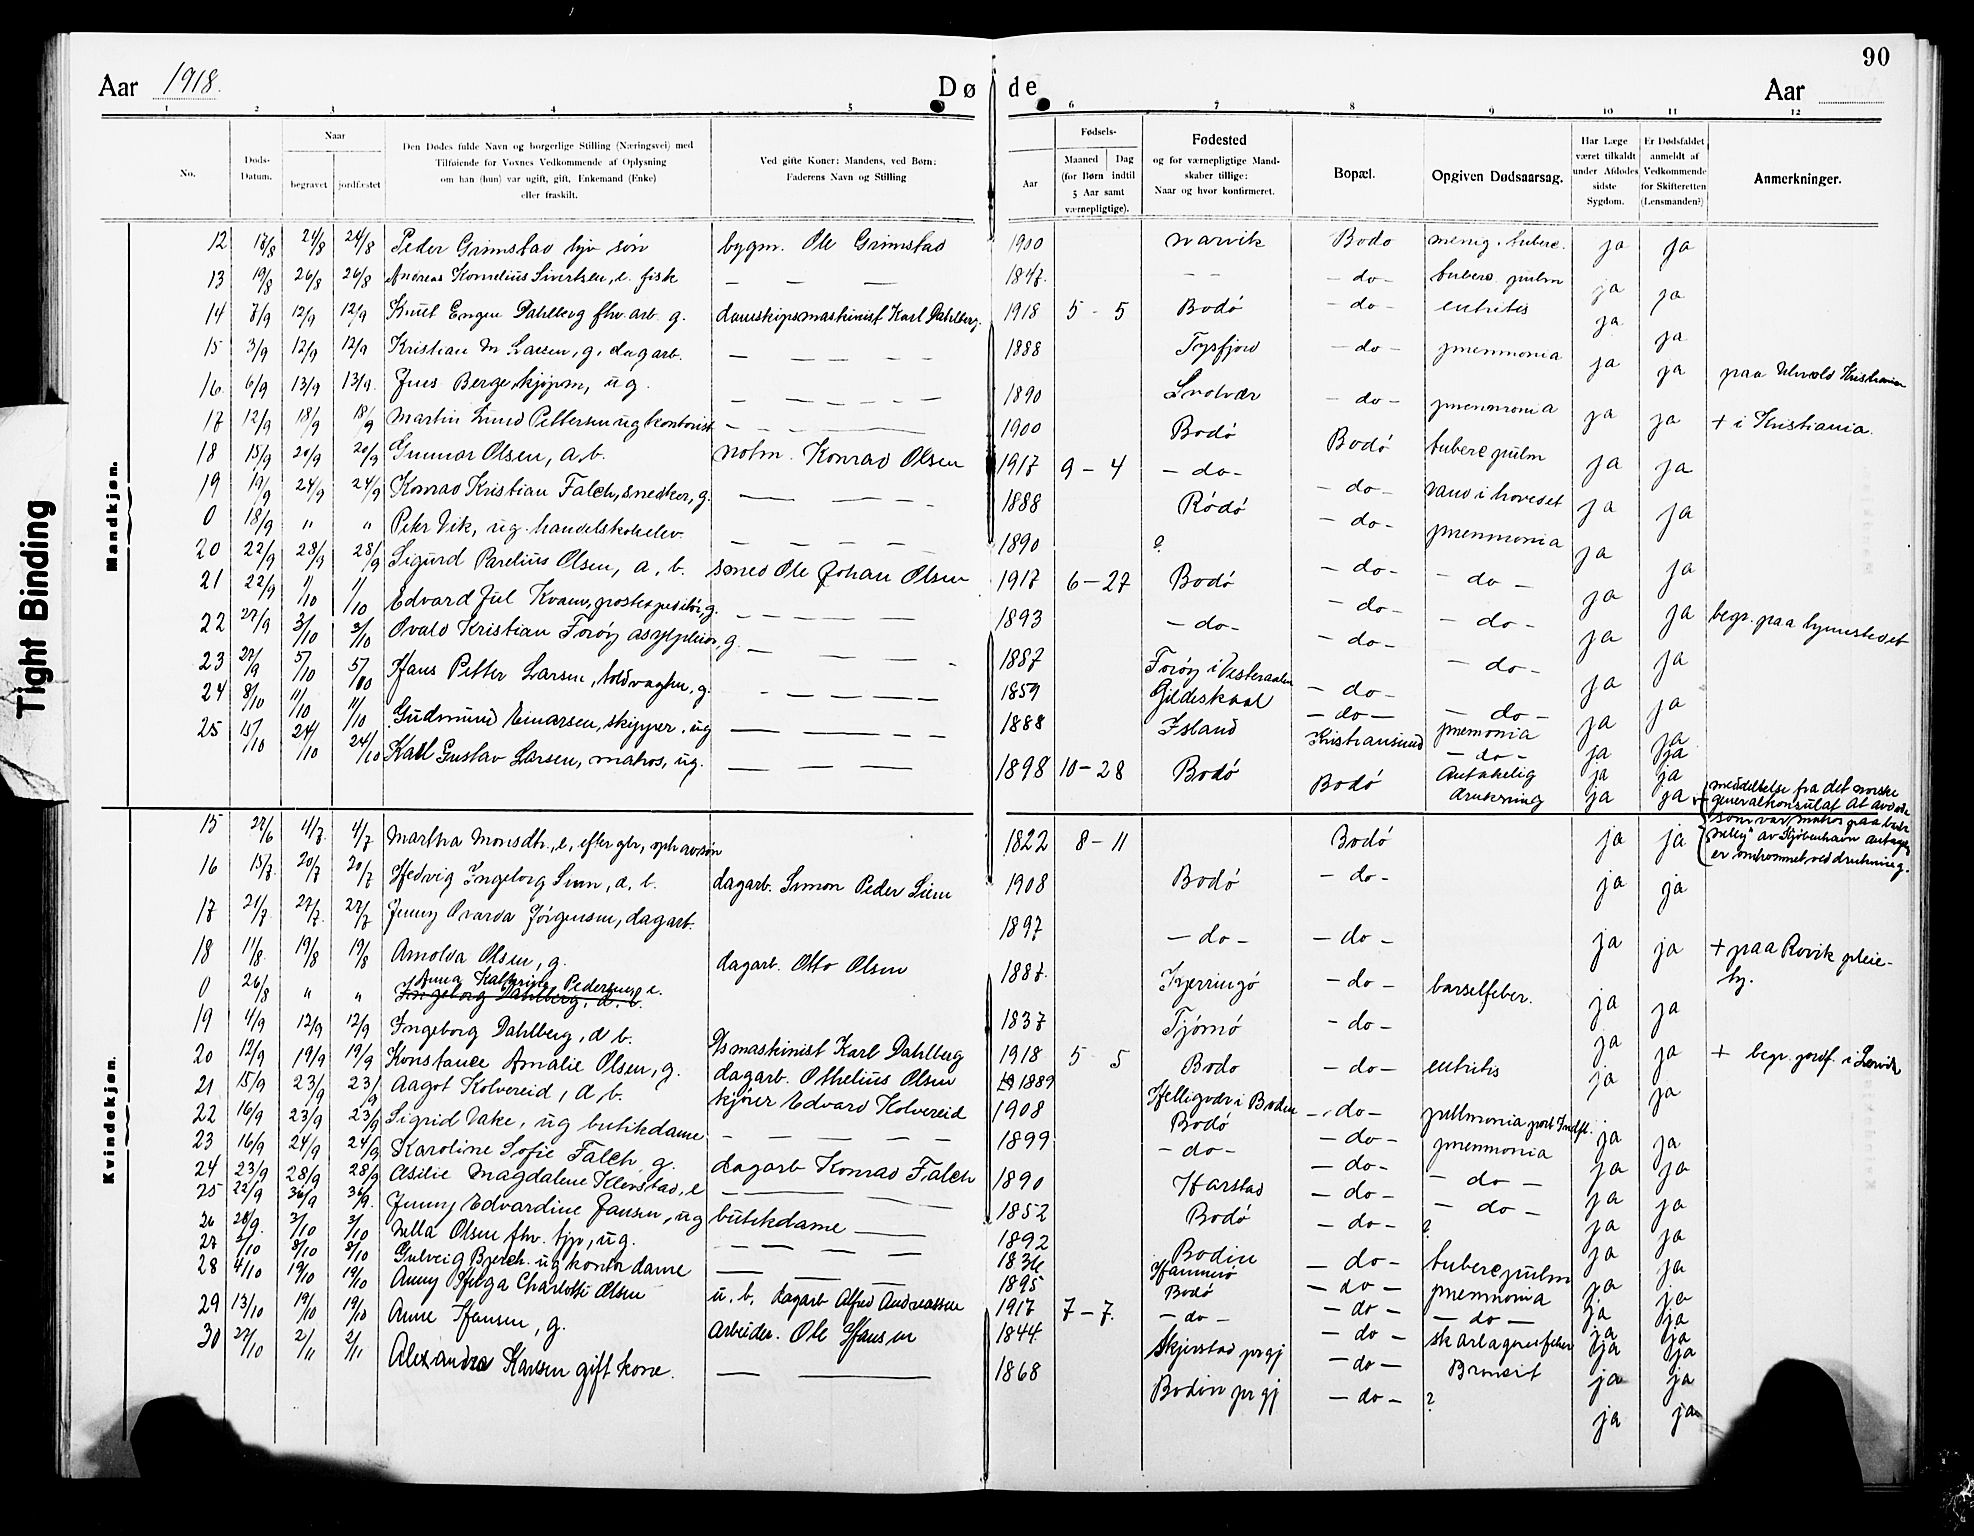 90
Aar 1918.
Døde
Aar
1 2 3 4 5 6 7 8 9 10 11 12
No.
Døds-Datum.
Naar
begravet
jordfæstet
Den Dødes fulde Navn og borgerlige Stilling (Næringsvei) med
Tilføiende for Voxnes Vedkommende af Oplysning
om han (hun) var ugift, gift, Enkemand (Enke)
eller fraskilt.
Ved gifte Koner: Mandens, ved Børn:
Faderens Navn og Stilling
Fødsels-
Aar
Maaned
Dag
(for Børn indtil
5 Aar samt
værnepligtige).
Fødested
og for værnepligtige Mand-
skaber tillige:
Naar og hvor konfirmeret.
Bopæl.
Opgiven Dødsaarsag.
Har Læge
været tilkaldt
under Afdødes
sidste
Sygdom.
Er Dødsfaldet
anmeldt af
Vedkommende
for Skifteretten
(Lensmanden?)
Anmerkninger.
Tight Binding
Mandkjøn.
12 17/8 24/8 24/8 Peder Grimstad hjv søn bygm. Ole Grimstad 1900 Narvik Bodø menig. tuberc. ja ja
13 19/8 26/8 26/8 Andreas Kornelius Sivertsen, e. fisk — — — 1847. - - - do - tuberc. pulm ja ja
14 7/9 12/9 12/9 Knut Engen Dahlberg fhv. arb. g. dampskipsmaskinist Karl Dahlberg 1918 5 - 5 Bodó - do - entritis ja ja
15 3/9 12/9 12/9 Kristian M Larsen, g. dagarb. — — — — 1888 Tysfjord - do - pnenmonia ja ja
16 6/9 13/9 13/9 Jens Berge, kjøpm, ug. — — — — — 1890 Svolvær - do - pnenmonia ja ja paa Ulvold Kristiania
17 12/9 18/9 18/9 Martin Lund Pettersen ug kontorist — — — 1900 Bodó Bodó tuberc pulm ja ja + i Kristiania.
18 15/9 20/9 20/9 Gunnar Olsen, a, b. notm. Konrad Olsen 1917 9 - 4 - do - - do - vand i hovedet ja ja
19 19/9 24/9 24/9 Konrad Kristian Falch, snedker, g. — — — - 1888 Ródó - do - pnenmonia ja ja
0 18/9 " " Peter Vik, ug. handelskoleelev. — — — — 1890 ? - do - - do - ja ja
20 22/9 28/9 28/9 Sigurd Parelius Olsen, a, b. smed Ole Johan Olsen 1917 6 - 27 Bodó - do - - do - ja ja
21 22/9 1/10 1/10 Edvard Jul Kvam, postexpeditør, g. — — — — 1893 - do - - do - - do - ja ja begr. paa hjemstedet
22 27/9 3/10 3/10 Ovald Kristian Forøy asylpleier, g. — — — - 1887 Forøy i Vesteraalen - do - - do - ja ja
23 27/9 5/10 5/10 Hans Petter Larsen, toldvagtm, g. - — — — — 1859 Gildeskaal - do - pnemonia ja ja
24 8/10 11/10 11/10 Gudmund Einarsen, skipper, ug — — — — - 1888 Island Kristiansund - do - ja ja
25 15/10 24/10 24/10 Karl Gustav Larsen, matros, ug. — — — — 1898 10 - 28 Bodó Bodó Antakelig drukning ja ja
meddelelse fra det norske
generalkonsulat at avdøde
som var matros paa
av Kjøbenhavn antages
er omkommet ved drukning.
Kvindekjøn.
15 27/6 4/7 4/7 Martha Monsdtr., e, efter gbr, oph av søn 1822 8 - 11 Bodó ja ja
16 15/7 20/7 20/7 Hedvig Ingeborg Siem, d, b. dagarb. Simon Peder Siem 1908 Bodó - do - ja ja
17 21/7 27/7 27/7 Jenny Ovarda Jörgensen, dagarb. 1897 - do - - do - ja ja + paa Rovik pleie-
hj.
18 11/8 19/8 19/8 Arnolda Olsen, g. dagarb. Otto Olsen 1887. Kjerringó - do - barselfeber. ja ja
Anna Kathrine Pedersen, e.
0 26/8 " " Ingeborg Dahlberg, d. b. 1837 Tjómó - do - ja ja
19 4/9 12/9 12/9 Ingeborg Dahlberg, d b. Dsmaskinist Karl Dahlberg 1918 5 5 Bodo - do - entritis ja ja + begr. jordf. i
20 12/9 19/9 19/9 Konstance Amalie Olsen, g. dagarb. Othelius Olsen 1889 Helligvær i Bodin - do - pullmonia post Infl. ja ja
21 15/9 23/9 23/9 Aagot Kolvereid, d, b. kjører Edvard Kolvereid 1908 Bodó - do - pnenmonia ja ja
22 16/9 23/9 23/9 Sigrid Vake, ug butikdame — — — — — 1899 - do - - do - - do - ja ja
23 16/9 24/9 24/9 Karoline Sofie Falch g. dagarb Konrad Falch 1890 Harstad - do - - do - ja ja
24 23/9 28/9 28/9 Asilie Magdalene Klevstad, e — — — 1852 Bodó - do - ? ja ja
25 22/9 30/9 30/9 Jenny Edvardine Jansen, ug butikdame — — 1892 Bodin - do - tuberc pulm ja ja
26 28/9. 3/10 3/10 Nella Olsen fhv. tjp, ug. — — — — 1836 Hammerö - do - pnenmonia ja ja
27 /10 8/10 8/10 Gulveig Bjerch. ug kontor dame — — — 1895 Bodó - do - - do - ja ja
28 4/10 19/10 19/10 Anny Helga Charlotte Olsen u. b. dagarb Alfred Andreassen 1917 7 - 7. - do - - do - skarlagensfeber ja ja
29 13/10 19/10 19/10 Anne Hansen, g. Arbeider. Ole Hansen 1844 Skjerstad prgj - do - Bronsit ja ja
30 27/10 2/11 2/11 Alexandra Karsen gift kone. — — 1868 Bodin prgj - do - ? ja ja